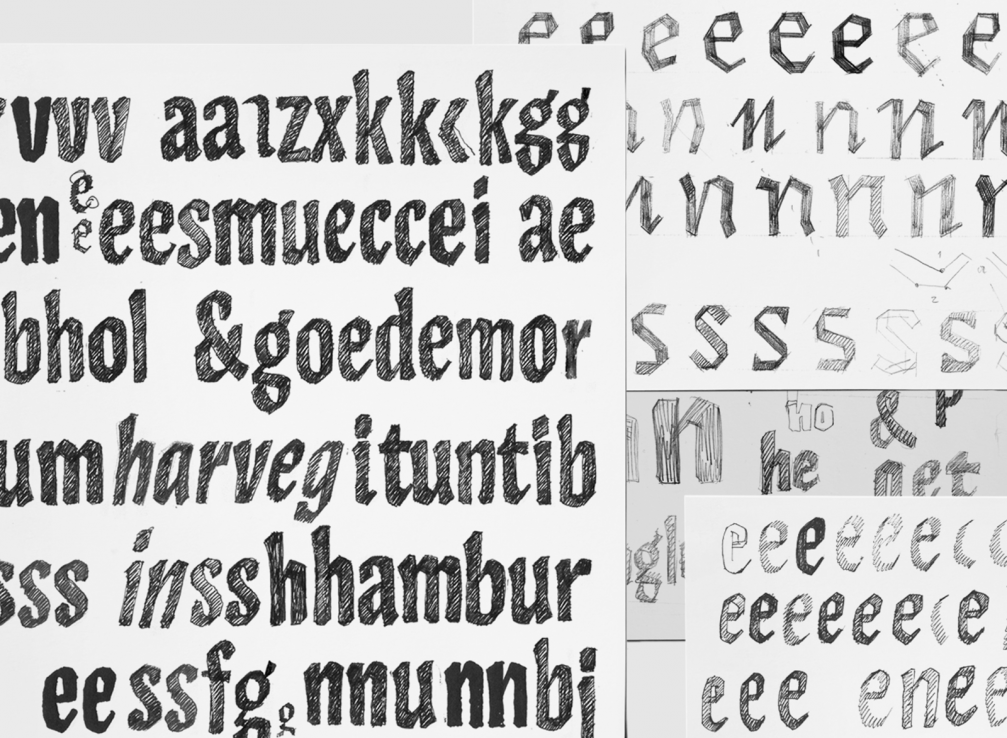 vvv aaızxkk‹kgg
en e e eesmueccei ae
bhol &goedemor
um harveg ituntib
sss insshhambur
ee ssfgg nnunnbi
e e e e e e e e
n n n n n n
n n n n n n
s s s s s s
n ho & p
he net
gl
e e e e e e
e e e e e e e
e e e e n e e